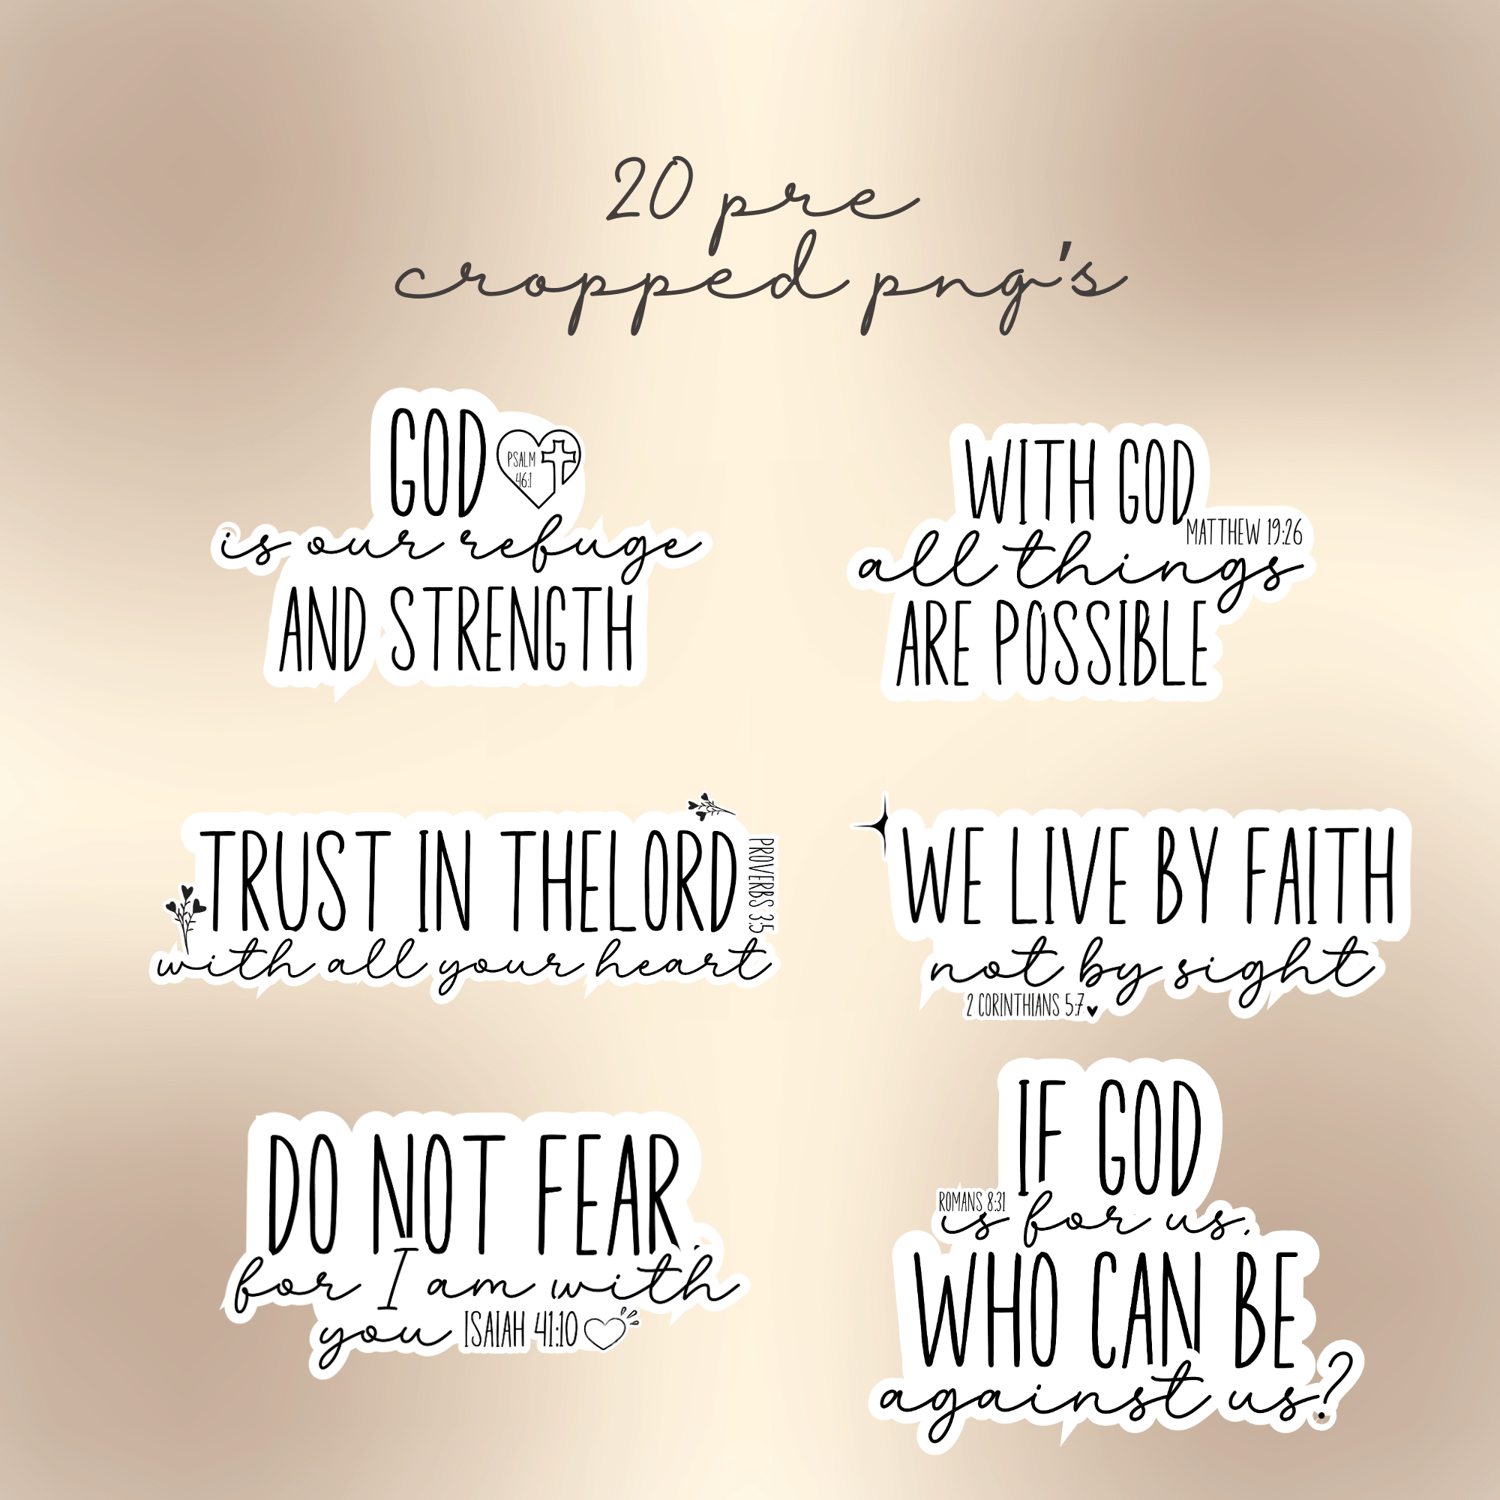 20 pre
cropped png's
GOD
PSALM
46:1
is our refuge
AND STRENGTH
WITH GOD
MATTHEW 19:26
all things
ARE POSSIBLE
TRUST IN THELORD
PROVERBS 3:5
with all your heart
WE LIVE BY FAITH
not by sight
2 CORINTHIANS 5:7
DO NOT FEAR,
for I am with
you ISAIAH 41:10
IF GOD
ROMANS 8:31
is for us,
WHO CAN BE
against us?